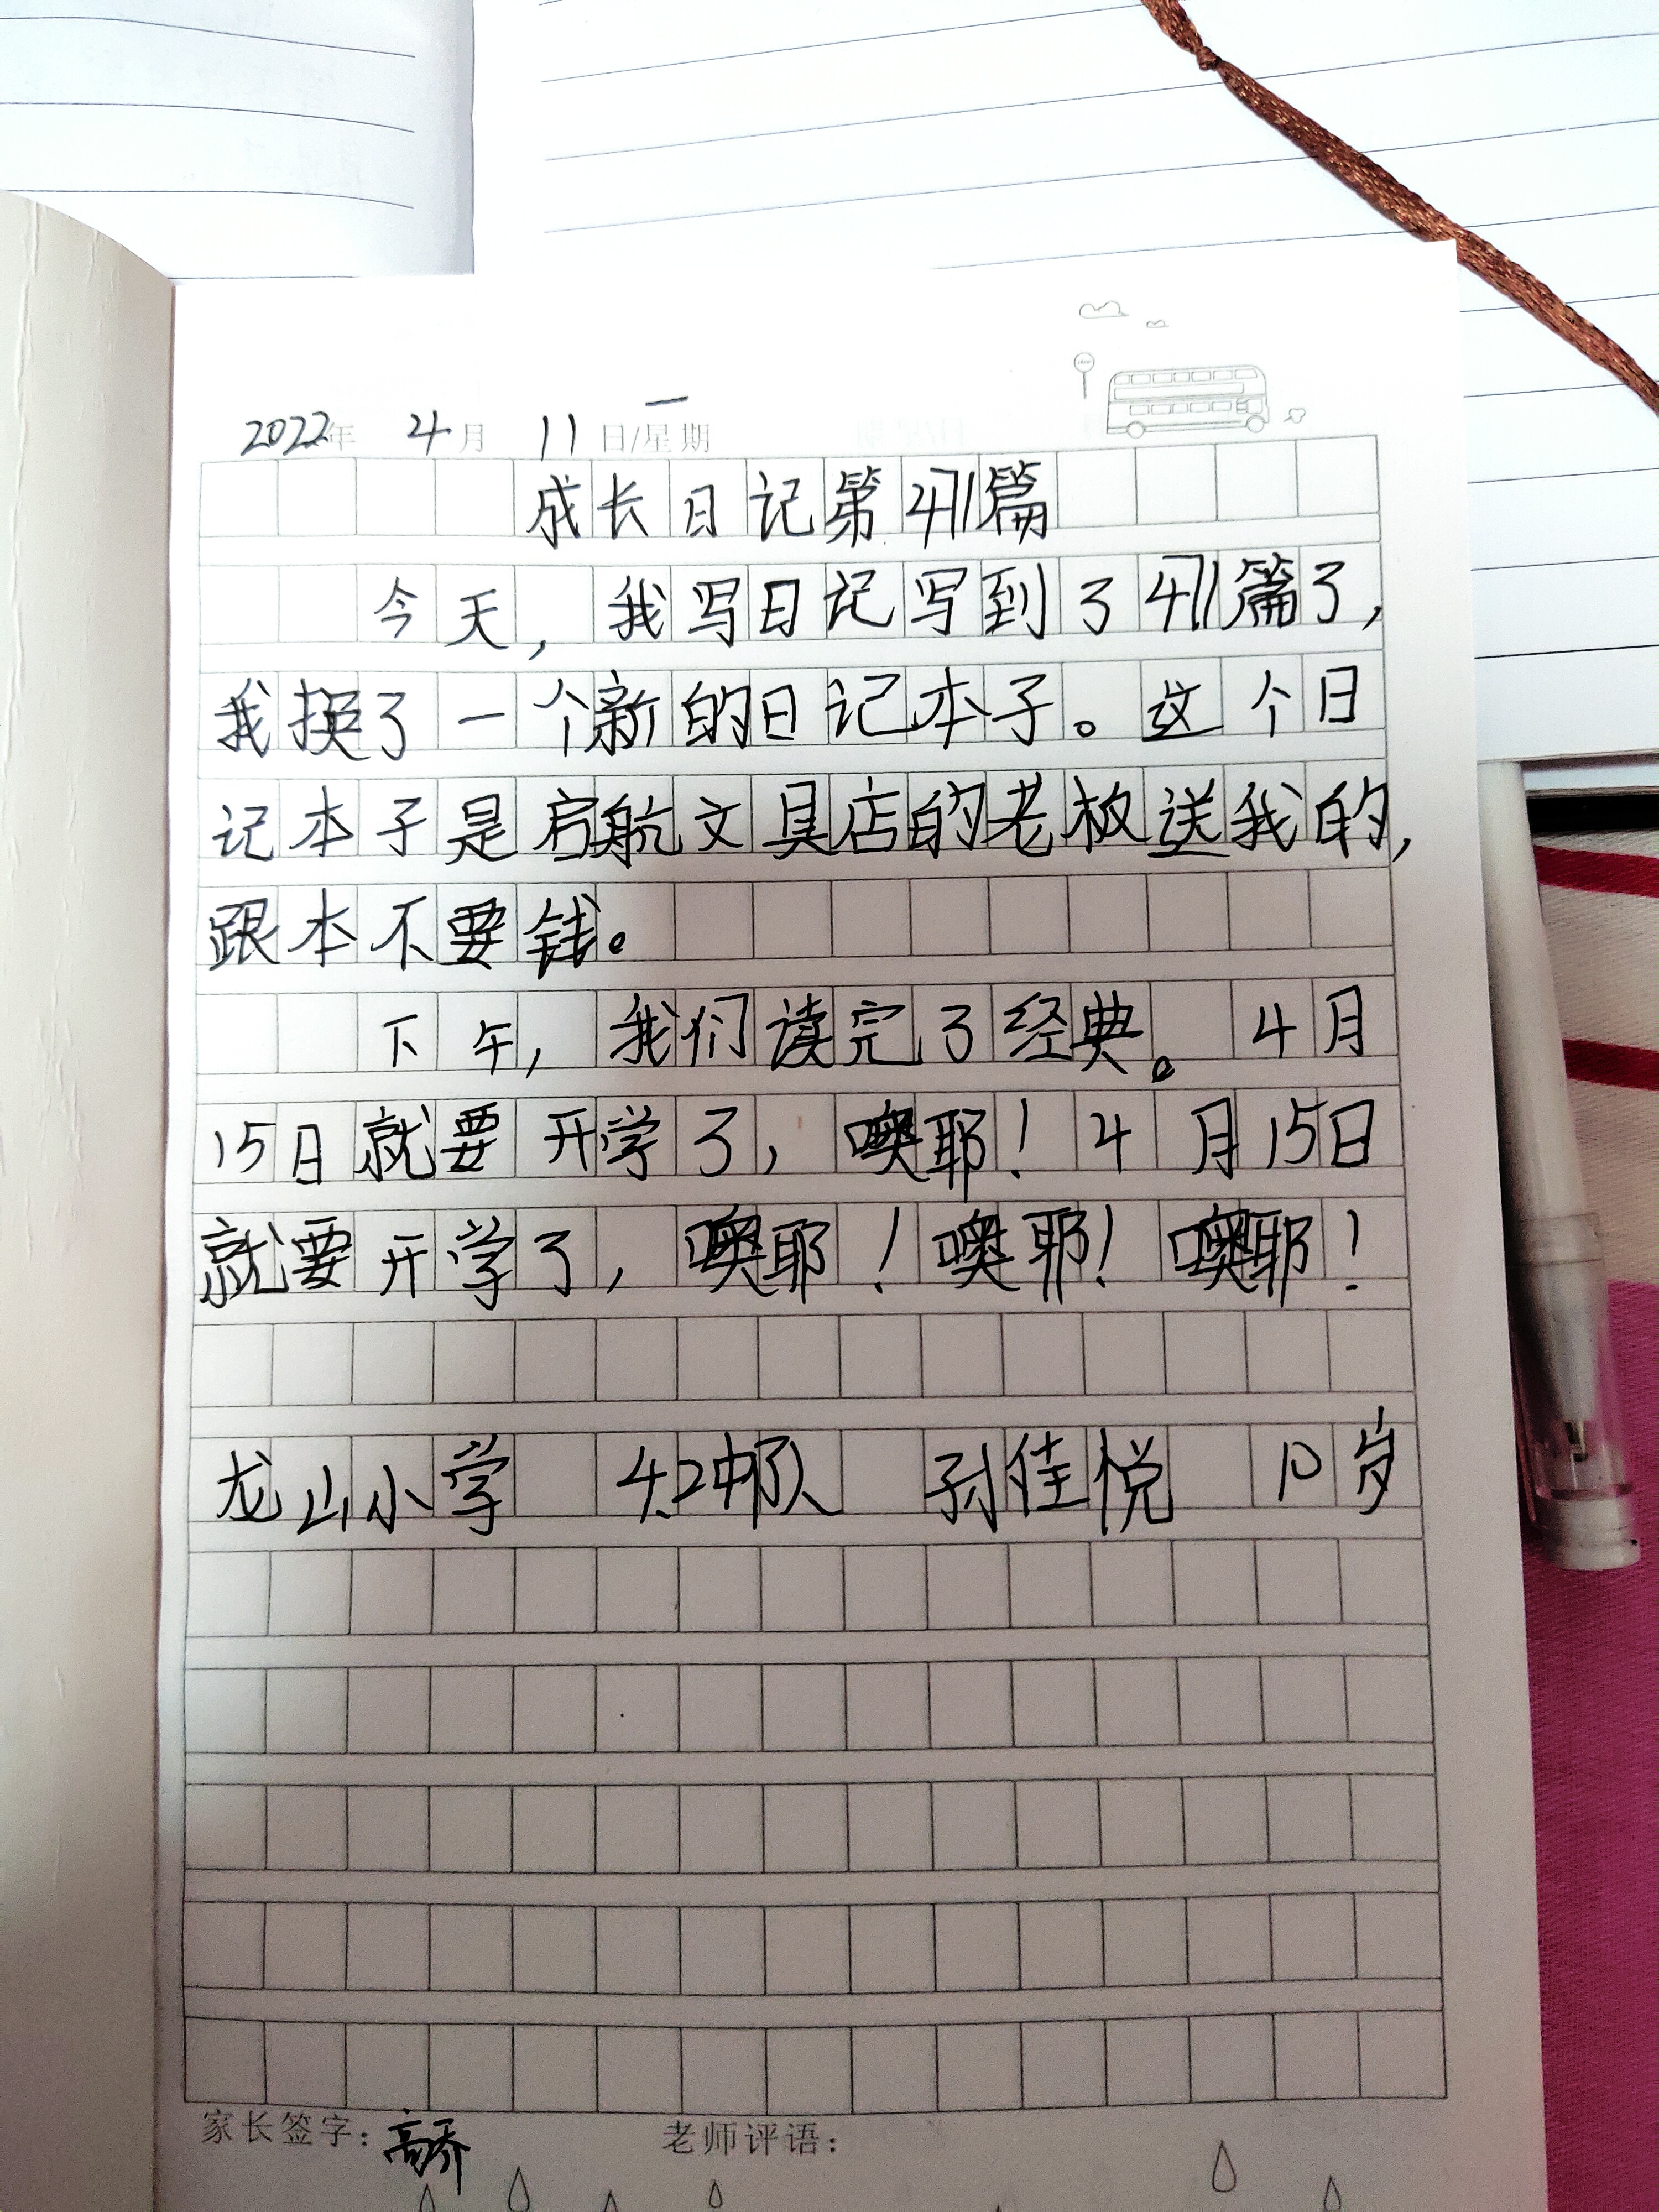 2022年 4月 11日/星期一
成长日记第471篇
今天，我写日记写到了471篇了，
我换了一个新的日记本子。这个日
记本子是启航文具店的老板送我的，
跟本不要钱。
下午，我们读完了经典。4月
15日就要开学了，噢耶！4月15日
就要开学了，噢耶！噢耶！噢耶！
龙山小学 4.2中队 孙佳悦 10岁
家长签字：高乔 老师评语：